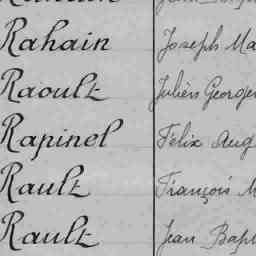 Rahain Joseph Ma
Raoult Julien Georges
Rapinel Félix Aug
Rault François M
Rault Jean Bapt